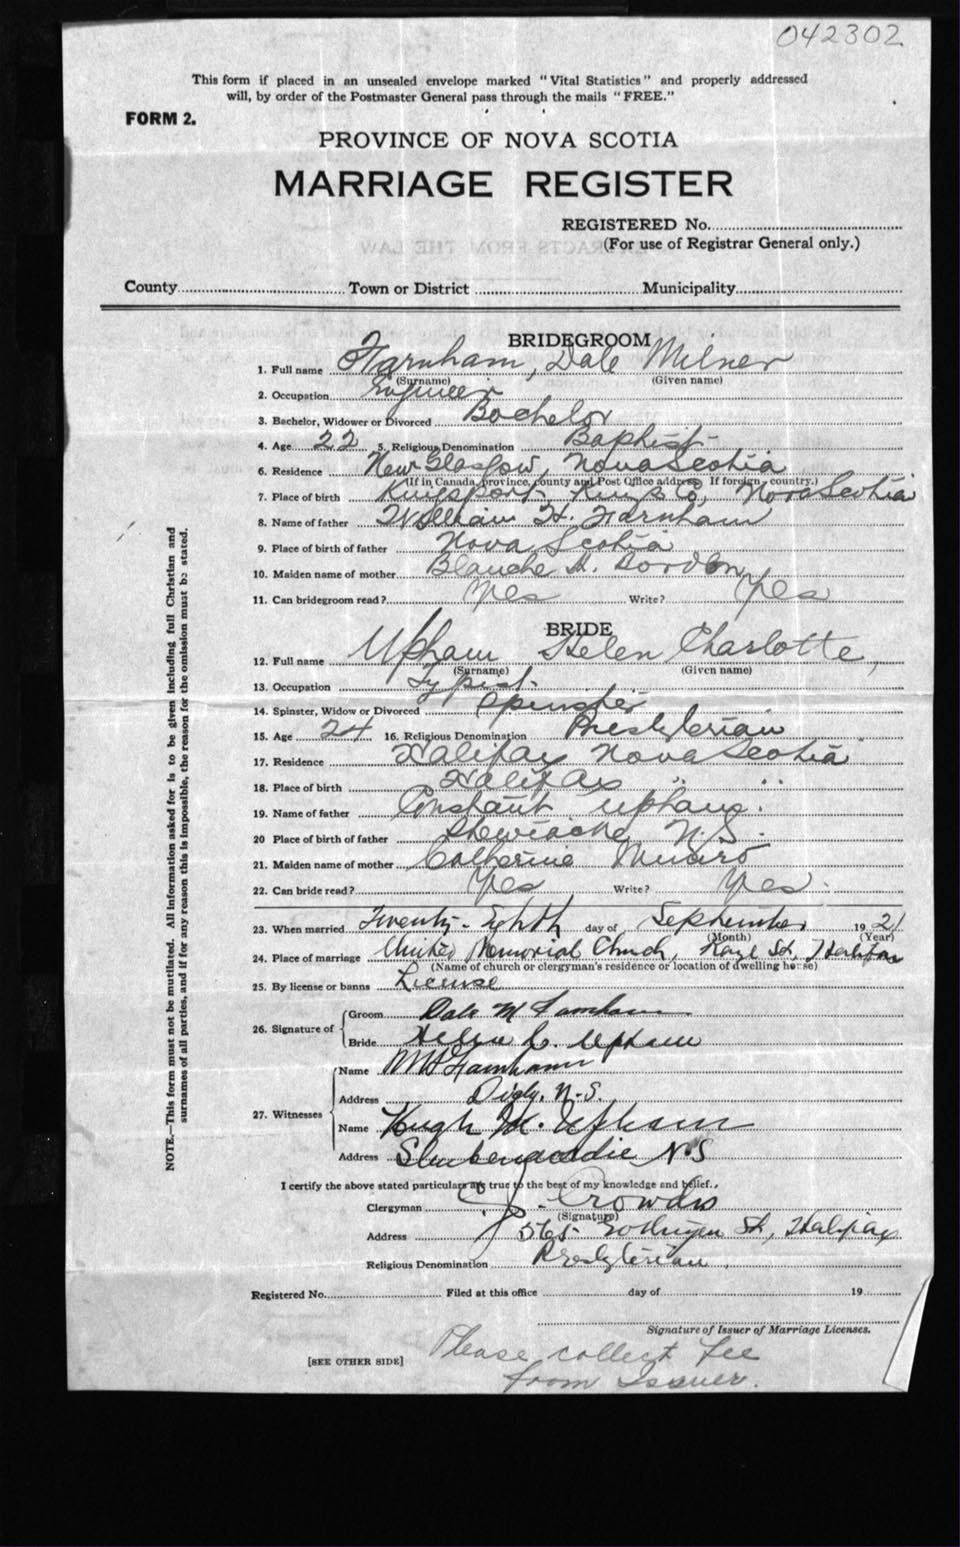 042302
This form if placed in an unsealed envelope marked "Vital Statistics" and properly addressed
will, by order of the Postmaster General pass through the mails "FREE."
FORM 2.
PROVINCE OF NOVA SCOTIA
MARRIAGE REGISTER
REGISTERED No.
(For use of Registrar General only.)
County Town or District Municipality
BRIDEGROOM
1. Full name Farnham, Dale Milner
(Surname) (Given name)
2. Occupation Engineer
3. Bachelor, Widower or Divorced Bachelor
4. Age 22 5. Religious Denomination Baptist
6. Residence New Glasgow, Nova Scotia
(If in Canada, province, county and Post Office address If foreign, country.)
7. Place of birth Kingsport, Kings Co, Nova Scotia
8. Name of father William H. Farnham
9. Place of birth of father Nova Scotia
10. Maiden name of mother Blanche H. Bordon
11. Can bridegroom read? Yes Write? Yes
BRIDE
12. Full name Upham Helen Charlotte,
(Surname) (Given name)
13. Occupation Typist
14. Spinster, Widow or Divorced Spinster
15. Age 24 16. Religious Denomination Presbyterian
17. Residence Halifax Nova Scotia
18. Place of birth Halifax " "
19. Name of father Constant Upham
20 Place of birth of father Shewiacke N.S.
21. Maiden name of mother Catherine Munro
22. Can bride read? Yes Write? Yes
23. When married Twenty-Eighth day of September 1921
(Month) (Year)
24. Place of marriage United Memorial Church, Kaye St, Halifax
(Name of church or clergyman's residence or location of dwelling house)
25. By license or banns License
26. Signature of Groom Dale M Farnham
Bride Helen C. Upham
27. Witnesses Name Wm H Farnham
Address Digby, N.S.
Name Hugh M. Upham
Address Shubenacadie N.S
I certify the above stated particulars are true to the best of my knowledge and belief.
Clergyman C. J. Crowdis
(Signature)
Address 565 Gottingen St, Halifax
Religious Denomination Presbyterian
Registered No. Filed at this office day of 19
Signature of Issuer of Marriage Licenses.
[SEE OTHER SIDE] Please collect fee
from Issuer.
NOTE.—This form must not be mutilated. All information asked for is to be given including full Christian and
surnames of all parties, and if for any reason this is impossible, the reason for the omission must be stated.